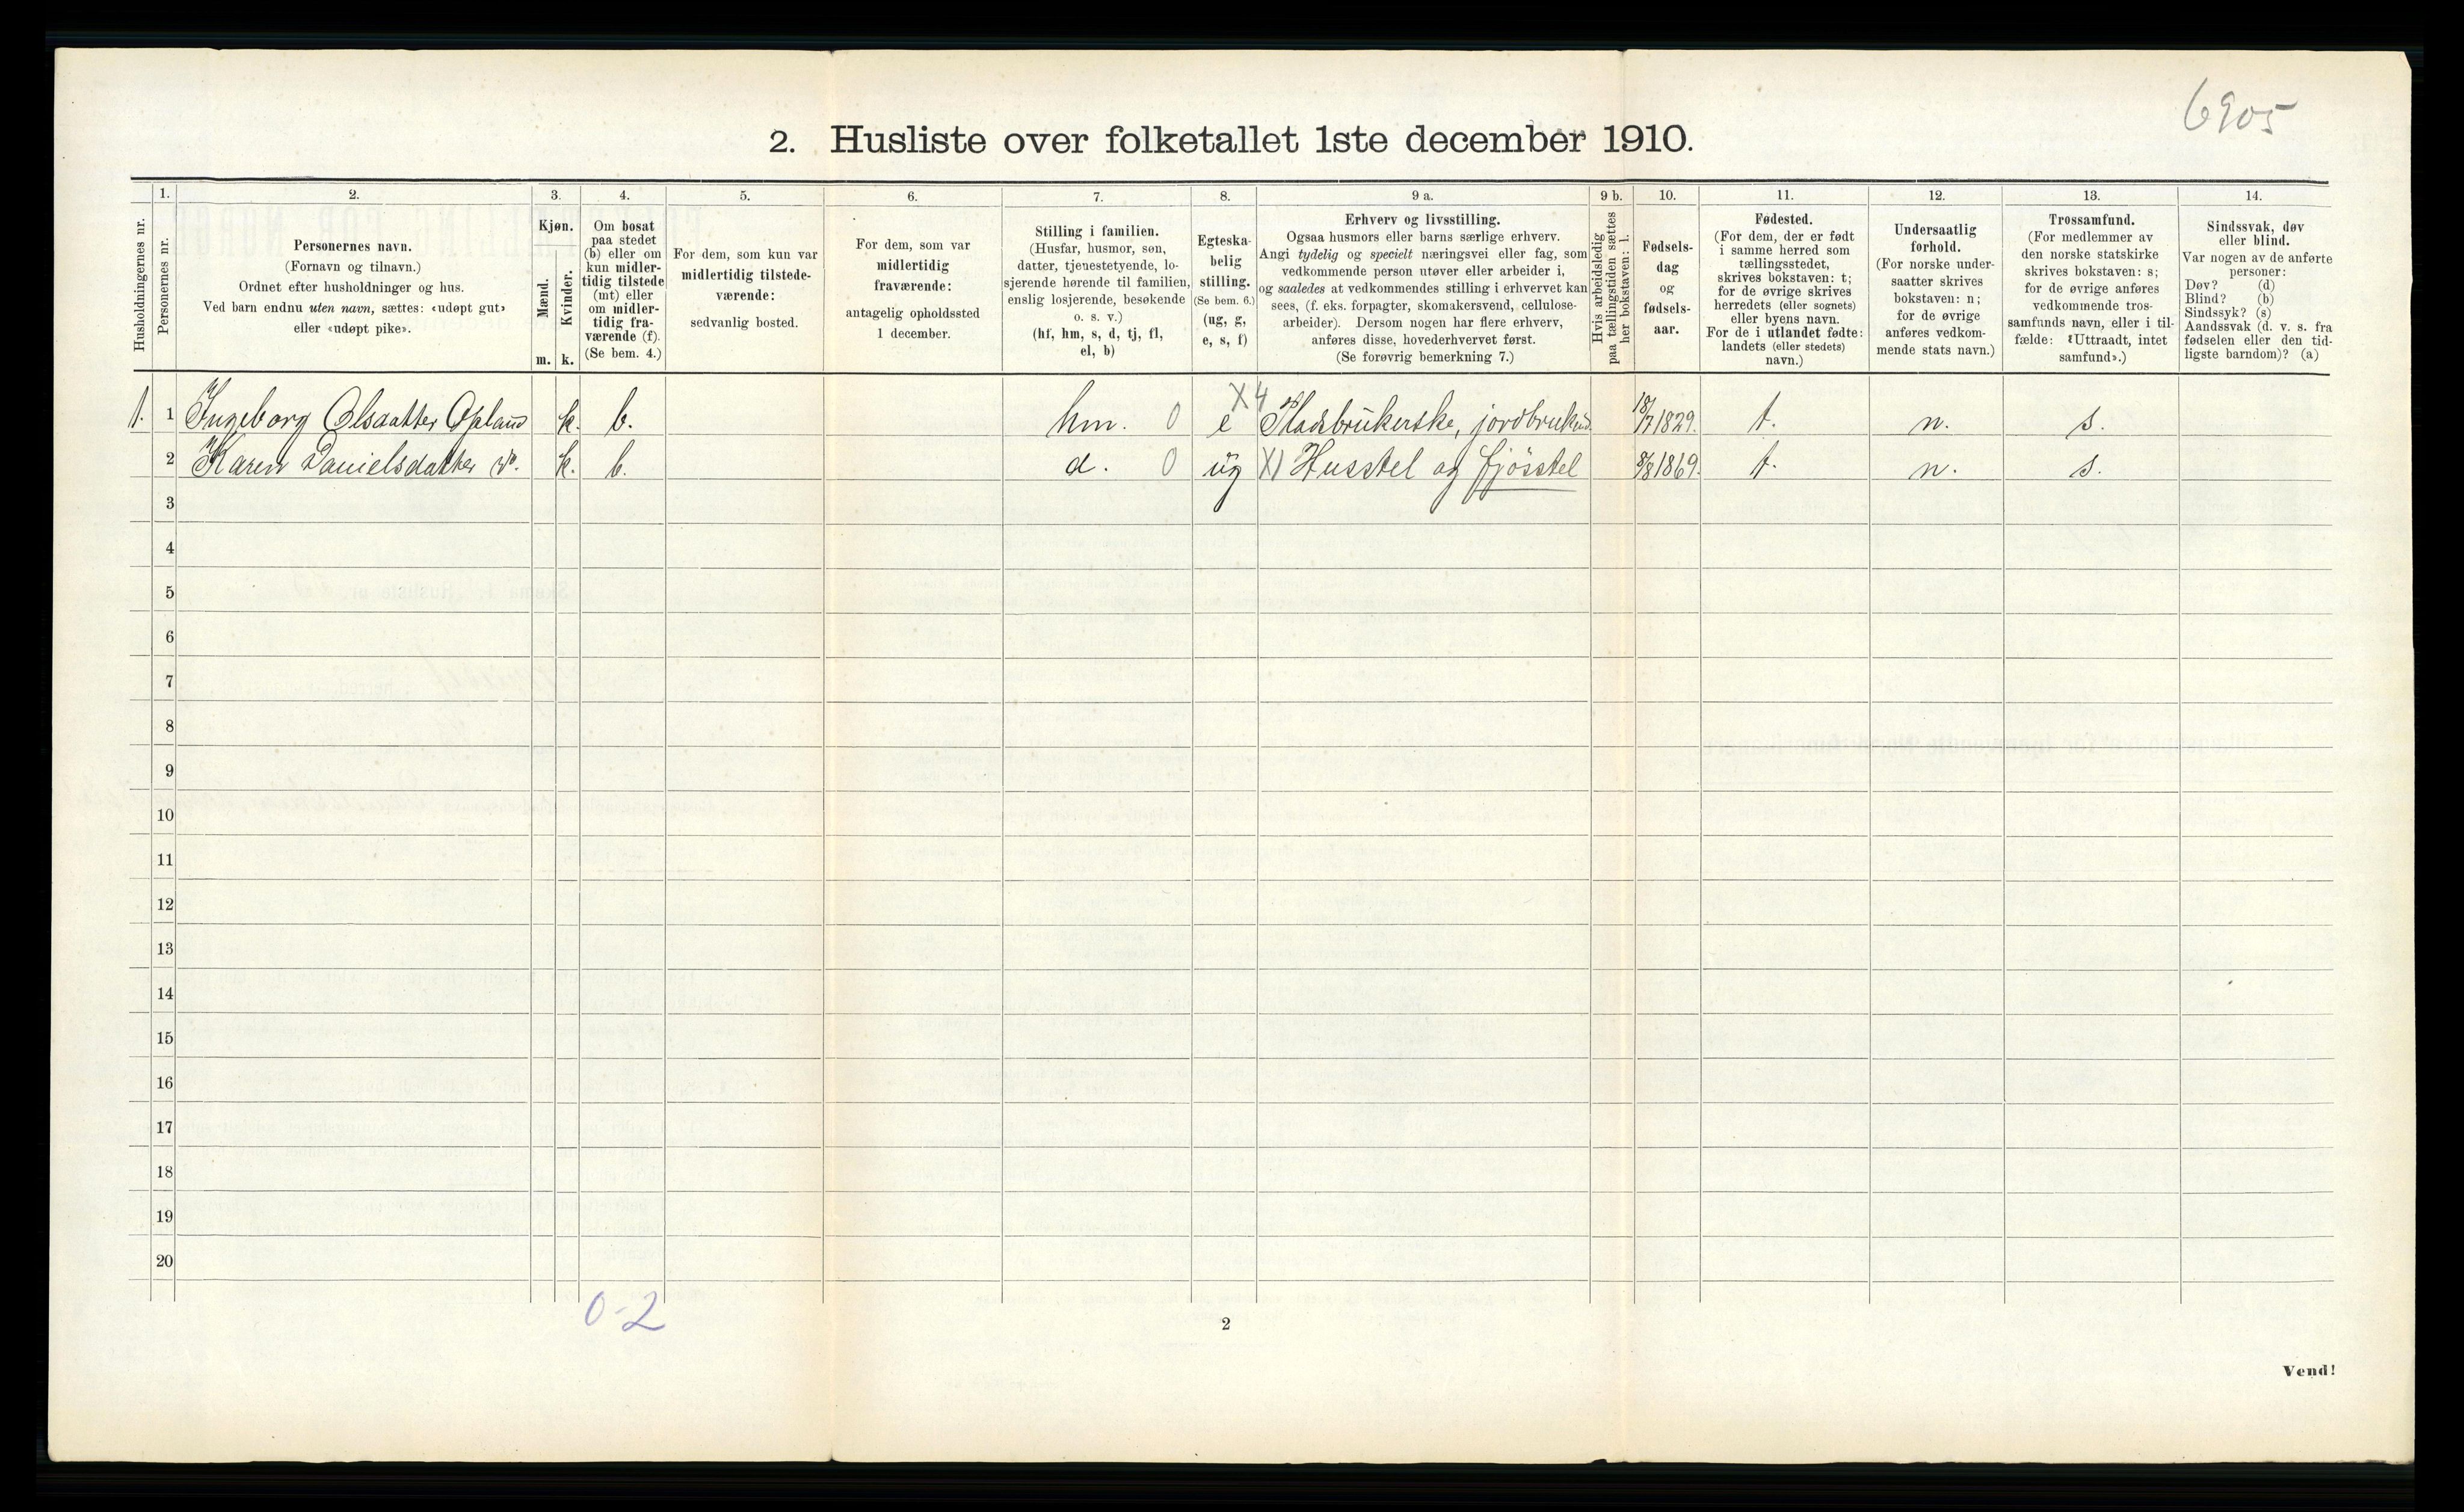 6905
2. Husliste over folketallet 1ste december 1910.
Husholdningernes nr.
1.
Personernes nr.
2.
Personernes navn.
(Fornavn og tilnavn.)
Ordnet efter husholdninger og hus.
Ved barn endnu uten navn, sættes: «udøpt gut»
eller «udøpt pike».
3.
Kjøn.
Mænd.
Kvinder.
m. k.
4.
Om bosat
paa stedet
(b) eller om
kun midler-
tidig tilstede
(mt) eller
om midler-
tidig fra-
værende (f).
(Se bem. 4.)
5.
For dem, som kun var
midlertidig tilstede-
værende:
sedvanlig bosted.
6.
For dem, som var
midlertidig
fraværende:
antagelig opholdssted
1 december.
7.
Stilling i familien.
(Husfar, husmor, søn,
datter, tjenestetyende, lo-
sjerende hørende til familien,
enslig losjerende, besøkende
o. s. v.)
(hf, hm, s, d, tj, fl,
el, b)
8.
Egteska-
belig
stilling.
(Se bem. 6.)
(ug, g,
e, s, f)
9 a.
Erhverv og livsstilling.
Ogsaa husmors eller barns særlige erhverv.
Angi tydelig og specielt næringsvei eller fag, som
vedkommende person utøver eller arbeider i,
og saaledes at vedkommendes stilling i erhvervet kan
sees, (f. eks. forpagter, skomakersvend, cellulose-
arbeider). Dersom nogen har flere erhverv,
anføres disse, hovederhvervet først.
(Se forøvrig bemerkning 7.)
9 b.
Hvis arbeidsledig
paa tællingstiden sættes
her bokstaven: l.
10.
Fødsels-
dag
og
fødsels-
aar.
11.
Fødested.
(For dem, der er født
i samme herred som
tællingsstedet,
skrives bokstaven: t;
for de øvrige skrives
herredets (eller sognets)
eller byens navn.
For de i utlandet fødte:
landets (eller stedets)
navn.)
12.
Undersaatlig
forhold.
(For norske under-
saatter skrives
bokstaven: n;
for de øvrige
anføres vedkom-
mende stats navn.)
13.
Trossamfund.
(For medlemmer av
den norske statskirke
skrives bokstaven: s;
for de øvrige anføres
vedkommende tros-
samfunds navn, eller i til-
fælde: «Uttraadt, intet
samfund».)
14.
Sindssvak, døv
eller blind.
Var nogen av de anførte
personer:
Døv? (d)
Blind? (b)
Sindssyk? (s)
Aandssvak (d. v. s. fra
fødselen eller den tid-
ligste barndom)? (a)
1. 1 Ingeborg Olsdatter Opland k. b. hm. 0 e X4 Pladsbrukerske, jordbruk 18/7 1829. t. n. s.
2 Karen Danielsdatter do. k. b. d. 0 ug X1 Husstel og fjøsstel 8/8 1869. t. n. s.
3
4
5
6
7
8
9
10
11
12
13
14
15
16
17
18
19
20
0-2
2
Vend!